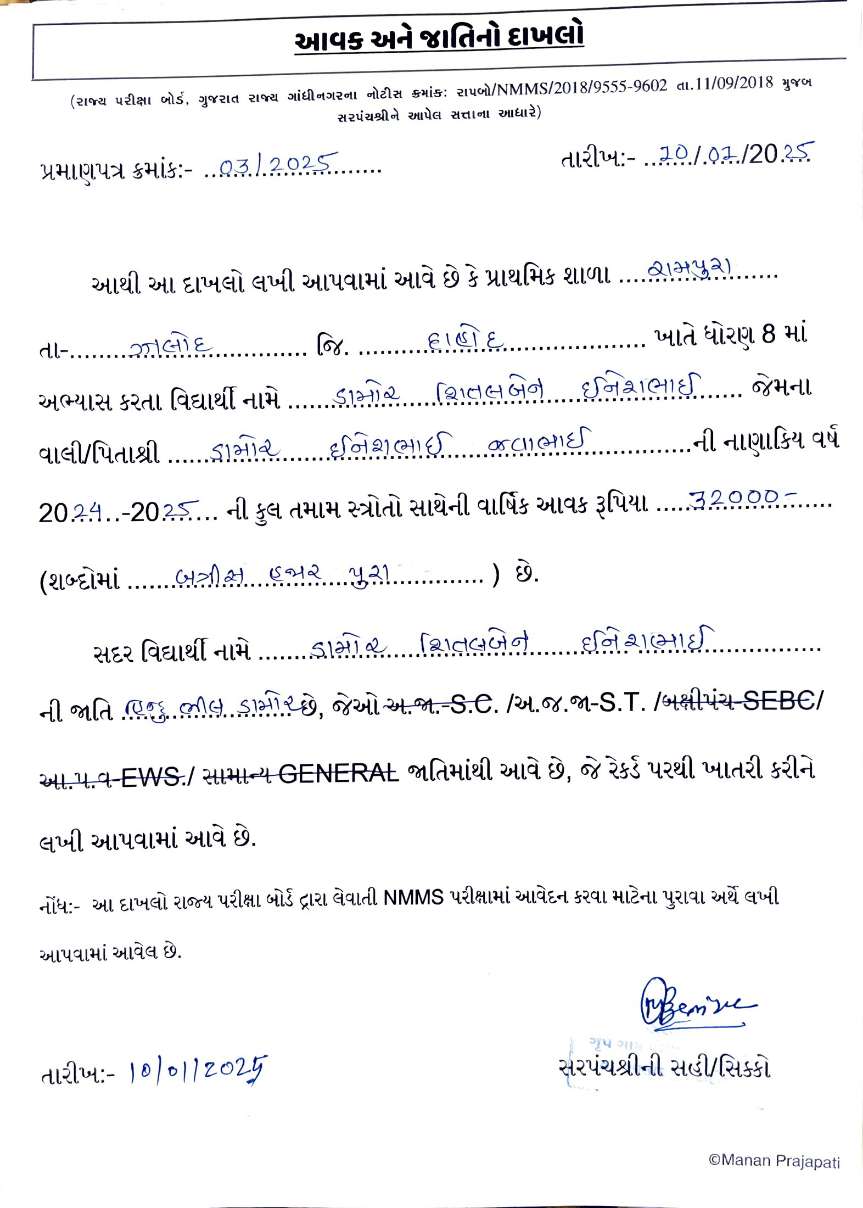 આવક અને જાતિનો દાખલો
(રાજ્ય પરીક્ષા બોર્ડ, ગુજરાત રાજ્ય ગાંધીનગરના નોટીસ ક્રમાંક: રાપબો/NMMS/2018/9555-9602 તા.11/09/2018 મુજબ
સરપંચશ્રીને આપેલ સત્તાના આધારે)
પ્રમાણપત્ર ક્રમાંક:- ..03/2025.......... તારીખ:- ...10./.01./2025
આથી આ દાખલો લખી આપવામાં આવે છે કે પ્રાથમિક શાળા ....રામપુરા......
તા-.......ઝાલોદ............ જિ. .........દાહોદ.................. ખાતે ધોરણ 8 માં
અભ્યાસ કરતા વિદ્યાર્થી નામે ......ડામોર શિતલબેન ઈનેશભાઈ...... જેમના
વાલી/પિતાશ્રી ......ડામોર ઈનેશભાઈ જવાભાઈ............ની નાણાકિય વર્ષ
2024..-2025... ની કુલ તમામ સ્ત્રોતો સાથેની વાર્ષિક આવક રૂપિયા .....32000-.....
(શબ્દોમાં .......બત્રીસ હજાર પુરા............ ) છે.
સદર વિદ્યાર્થી નામે .......ડામોર શિતલબેન ઈનેશભાઈ............
ની જાતિ હિન્દુ ભીલ ડામોર છે, જેઓ અ.જા.-S.C. /અ.જ.જા-S.T. /બક્ષીપંચ-SEBC/
આ.પ.વ-EWS./ સામાન્ય GENERAL જાતિમાંથી આવે છે, જે રેકર્ડ પરથી ખાતરી કરીને
લખી આપવામાં આવે છે.
નોંધ:- આ દાખલો રાજ્ય પરીક્ષા બોર્ડ દ્વારા લેવાતી NMMS પરીક્ષામાં આવેદન કરવા માટેના પુરાવા અર્થે લખી
આપવામાં આવેલ છે.
તારીખ:- 10/01/2025 સરપંચશ્રીની સહી/સિક્કો
©Manan Prajapati